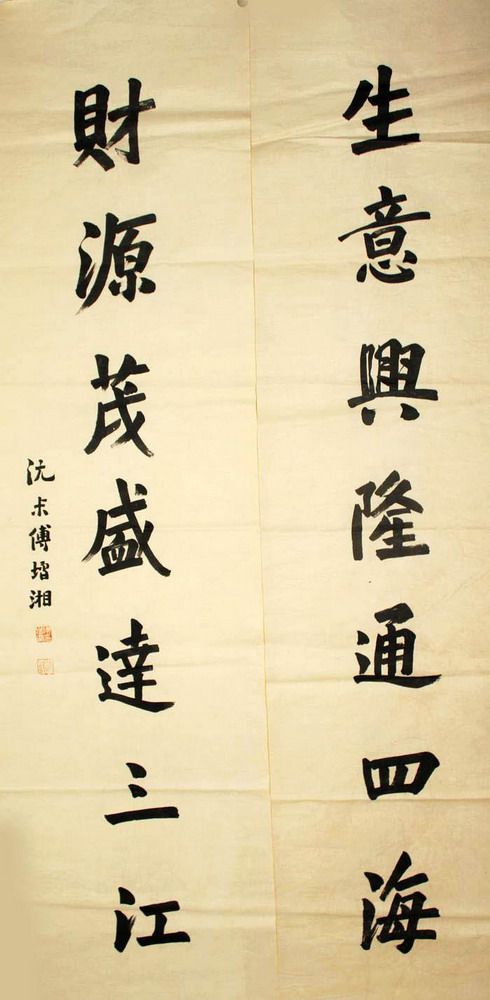 生意興隆通四海
財源茂盛達三江
沅叔傅增湘